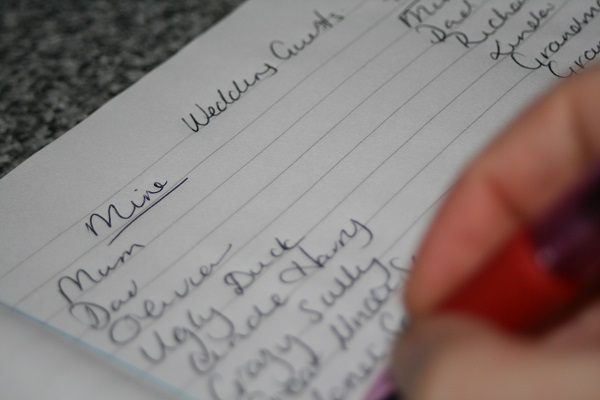 Wedding Guests
Mine
Mum
Dad
Olivia
Ugly Duck
Uncle Harry
Crazy Sully
Great Uncle
Mum
Dad
Richard
Linda
Grandma